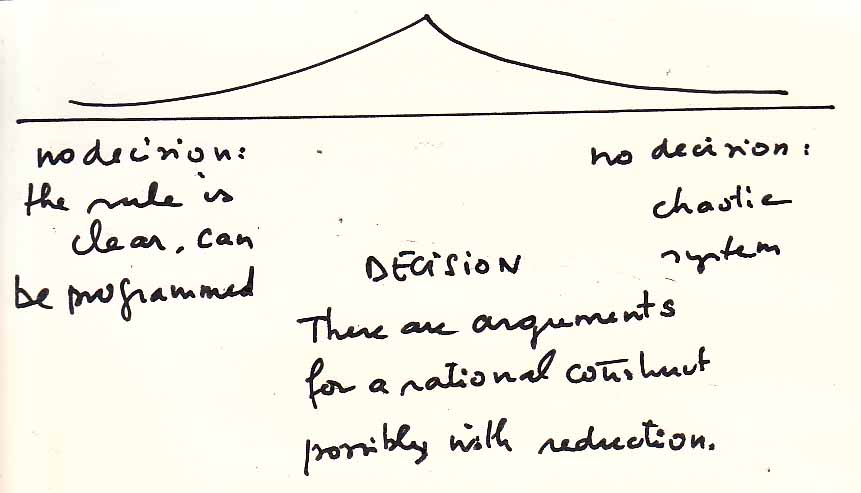 no decision:
the rule is
clear, can
be programmed
DECISION
There are arguments
for a rational construct
possibly with reduction.
no decision:
chaotic
system